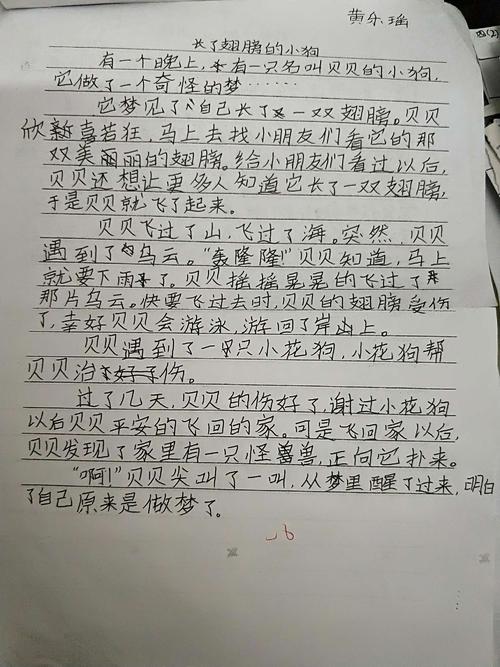 黄乐瑶
四(2)
长了翅膀的小狗
有一个晚上,有一只名叫贝贝的小狗,
它做了一个奇怪的梦……
它梦见了自己长了一双翅膀。贝贝
欣喜若狂,马上去找小朋友们看它的那
双美丽丽的翅膀。给小朋友们看过以后,
贝贝还想让更多人知道它长了一双翅膀,
于是贝贝就飞了起来。
贝贝飞过了山,飞过了海。突然,贝贝
遇到了乌云。“轰隆隆!”贝贝知道,马上
就要下雨了。贝贝摇摇晃晃的飞过了
那片乌云。快要飞过去时,贝贝的翅膀受伤
了,幸好贝贝会游泳,游回了岸上。
贝贝遇到了一只小花狗,小花狗帮
贝贝治伤。
过了几天,贝贝的伤好了,谢过小花狗
以后贝贝平安的飞回的家。可是飞回家以后,
贝贝发现了家里有一只怪兽,正向它扑来。
“啊!”贝贝尖叫了一叫,从梦里醒了过来,明白
了自己原来是做梦了。